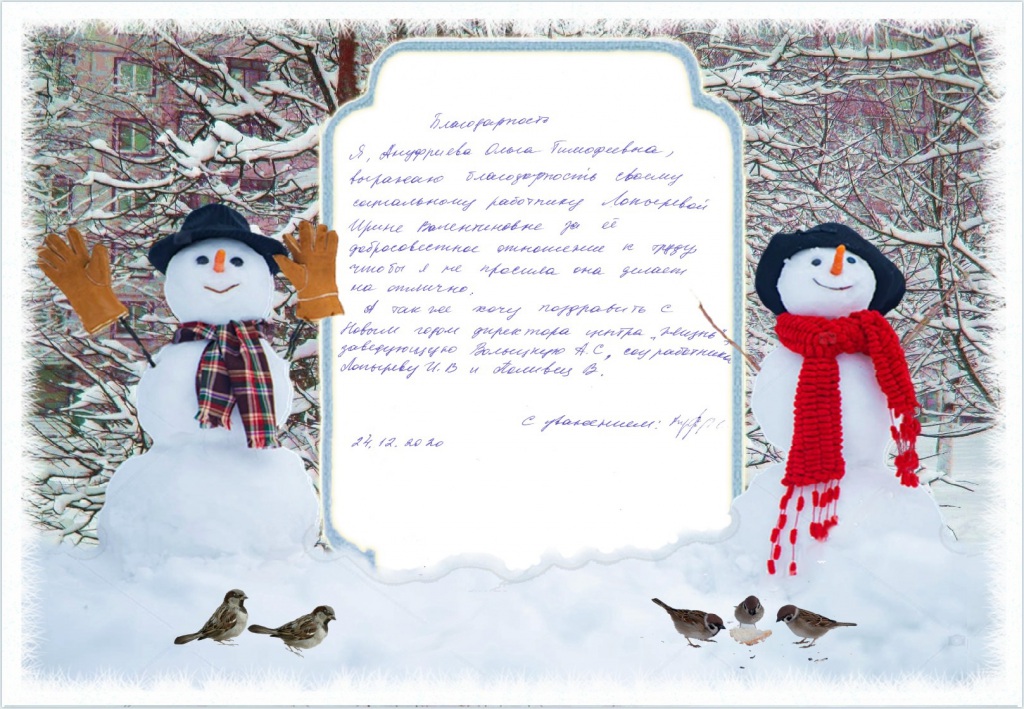 Благодарность
Я, Ануфриева Ольга Тимофеевна,
выражаю благодарность своему
социальному работнику Лопыревой
Ирине Валентиновне за её
добросовестное отношение к труду
чтобы я не просила она делает
на отлично.
А так же хочу поздравить с
Новым годом директора центра „Жизнь"
заведующую Вольицкую А.С., соц работника
Лопыреву И.В и Поливец В.
С уважением:
24.12.2020